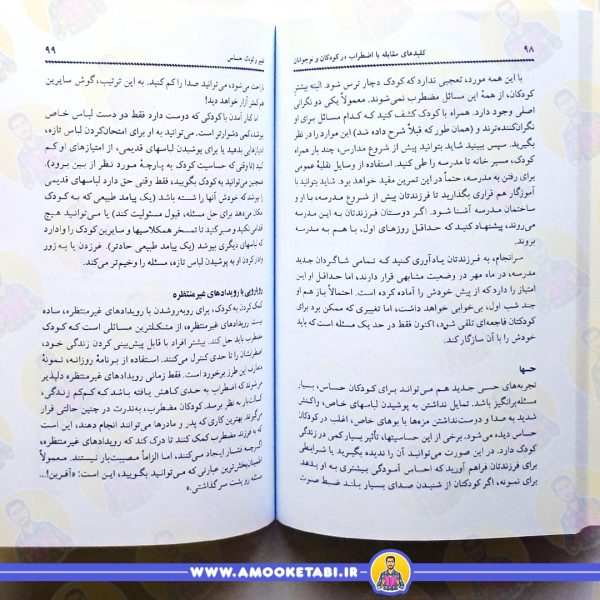 ۹۸
کلیدهای مقابله با اضطراب در کودکان و نوجوانان
با این همه مورد، تعجبی ندارد که کودک دچار ترس شود. البته بیشتر
کودکان، از همهٔ این مسائل مضطرب نمی‌شوند. معمولاً یکی دو نگرانی
اصلی وجود دارد. همراه با کودک کشف کنید که کدام مسائل برای او
نگران‌کننده‌ترند و (همان طور که قبلاً شرح داده شد) این موارد را در نظر
بگیرید. سپس ببینید شاید بتوانید پیش از شروع مدارس، چند بار همراه
کودک، مسیر خانه تا مدرسه را طی کنید. استفاده از وسایل نقلیهٔ عمومی
برای رفتن به مدرسه، حتماً در این تمرین مفید خواهد بود. شاید بتوانید با
آموزگار هم قراری بگذارید تا فرزندتان پیش از شروع مدرسه، با
ساختمان مدرسه آشنا شود. اگر دوستان فرزندتان به این مدرسه
می‌روند، پیشنهاد کنید که حداقل روزهای اول، با هم به مدرسه
بروند.
سرانجام، به فرزندتان یادآوری کنید که تمامی شاگردان جدید
مدرسه، در ماه مهر در وضعیت مشابهی قرار دارند، اما حداقل او این
امتیاز را دارد که از پیش خودش را آماده کرده است. احتمالاً باز هم او
چند شب اول، بی‌خوابی خواهد داشت، اما تغییری که ممکن بود برای
کودکتان فاجعه‌ای تلقی شود، اکنون فقط در حد یک مسئله است که باید
خودش را با آن سازگار کند.
حسها
تجربه‌های حسی جدید هم می‌تواند برای کودکان حساس، بسیار
مسئله‌برانگیز باشد. تمایل نداشتن به پوشیدن لباسهای خاص، واکنش
شدید به صدا و دوست نداشتن مزه‌ها یا بوهای خاص، اغلب در کودکان
حساس دیده می‌شود. برخی از این حساسیتها، تأثیر بسیار کمی در زندگی
کودک دارد. در این صورت می‌توانید آن را ندیده بگیرید یا شرایطی
برای فرزندتان فراهم آورید که احساس آسودگی بیشتری به او بدهد.
برای نمونه، اگر کودکتان از شنیدن صدای بسیار بلند ضبط صوت
۹۹
کودک حساس
می‌شود، می‌توانید صدا را کم کنید. به این ترتیب، گوش سایرین
هم کمتر آزار خواهد دید!
اما کنار آمدن با کودکی که دوست دارد فقط دو دست لباس خاص
بپوشد، کمی دشوارتر است. می‌توانید به او برای امتحان‌کردن لباس تازه،
بدهید یا برای پوشیدن لباسهای قدیمی، از امتیازهای او کم
کنید (تا وقتی که حساسیت کودک به پارچهٔ مورد نظر از بین برود).
همچنین می‌توانید به کودک بگویید، فقط وقتی حق دارد لباسهای قدیمی
را بپوشد که خودش آنها را شسته باشد (یک پیامد طبیعی که به کودک
امکان می‌دهد برای حل مسئله، قبول مسئولیت کند) یا می‌توانید هیچ
نکنید و صبر کنید تا تمسخر همکلاسیها و سایرین کودک را وادارد
که لباسهای دیگری بپوشد (یک پیامد طبیعی حادتر). غر زدن یا به زور
وادار کردن او به پوشیدن لباس تازه، مسئله را وخیم‌تر می‌کند.
رویارویی با رویدادهای غیرمنتظره
کمک کردن به کودک، برای روبه‌روشدن با رویدادهای غیرمنتظره، ساده
نیست. رویدادهای غیرمنتظره، از مشکلترین مسائلی است که کودک
مضطرب باید حل کند. بیشتر افراد با قابل پیش‌بینی کردن زندگی خود،
اضطرابشان را تا حدی کنترل می‌کنند. استفاده از برنامهٔ روزانه، نمونهٔ
متعارف این طرز برخورد است. فقط زمانی رویدادهای غیرمنتظره دلپذیر
می‌شوند که اضطراب به حدی کاهش یافته باشد که کم‌کم زندگی،
کسالت‌بار به نظر برسد. کودکان مضطرب، به‌ندرت در چنین حالتی قرار
می‌گیرند. بهترین کاری که پدر و مادرها می‌توانند انجام دهند، این است
که به فرزند مضطرب کمک کنند تا درک کند که رویدادهای غیرمنتظره،
اگرچه فشار ایجاد می‌کنند، اما الزاماً مصیبت‌بار نیستند. معمولاً
اطمینان‌بخش‌ترین عبارتی که می‌توانید بگویید، این است: «آفرین!...
مسئله رو پشت سر گذاشتی.»
WWW.AMOOKETABI.IR